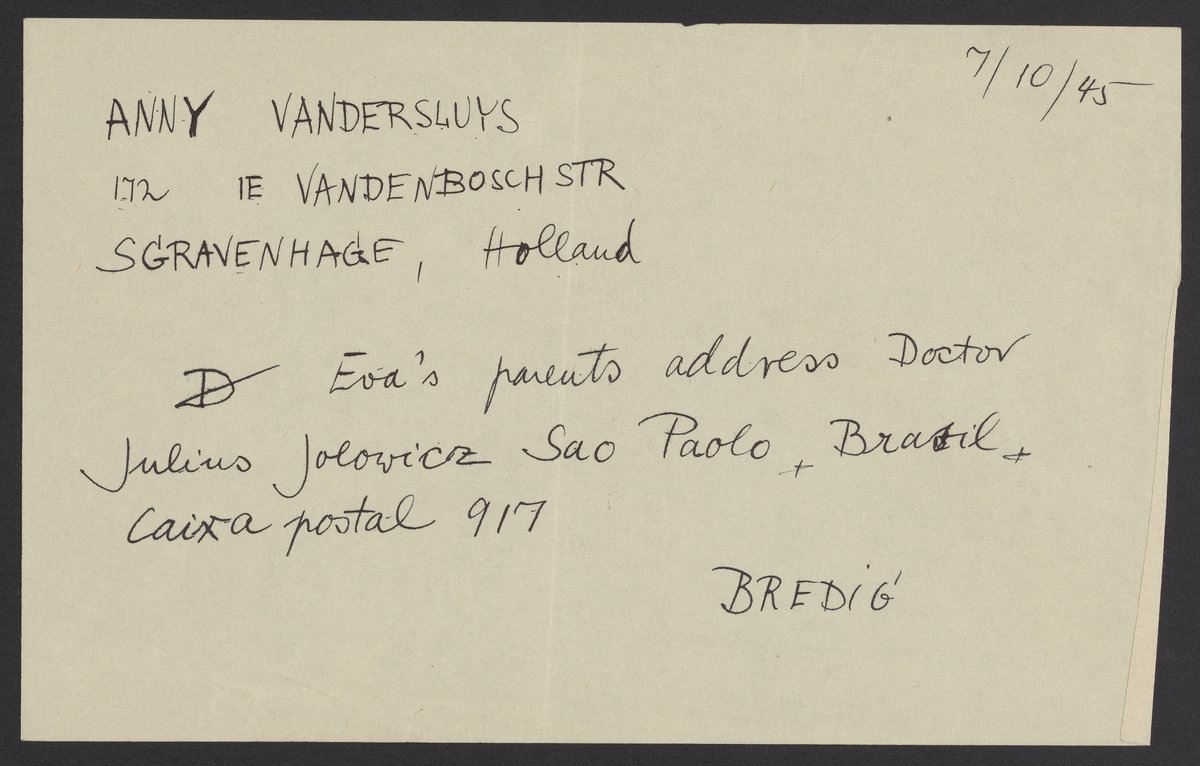 7/10/45
ANNY VANDERSLUYS
172 IE VANDENBOSCHSTR
SGRAVENHAGE, Holland
D Eva's parents address Doctor
Julius Jolowicz Sao Paolo + Brazil +
Caixa postal 917
BREDIG